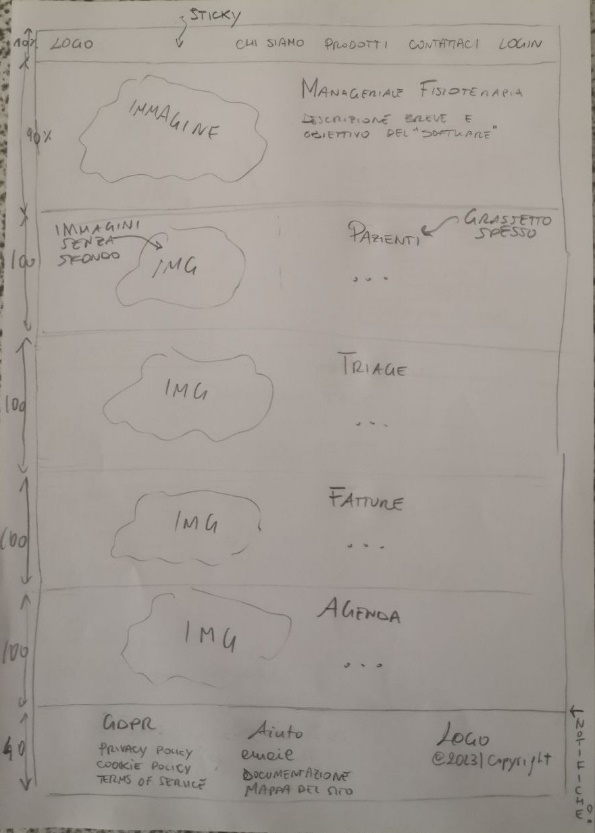 STICKY
10%
LOGO
CHI SIAMO PRODOTTI CONTATTACI LOGIN
IMMAGINE
MANAGERIALE FISIOTERAPIA
DESCRIZIONE BREVE E
OBIETTIVO DEL "SOFTWARE"
90%
IMMAGINI
SENZA
SFONDO
IMG
PAZIENTI
GRASSETTO
SPESSO
100
...
IMG
TRIAGE
100
...
IMG
FATTURE
100
...
IMG
AGENDA
100
...
GDPR
PRIVACY POLICY
COOKIE POLICY
TERMS OF SERVICE
Aiuto
email
DOCUMENTAZIONE
MAPPA DEL SITO
LOGO
©2023|Copyright
40
NOTIFICHE?!